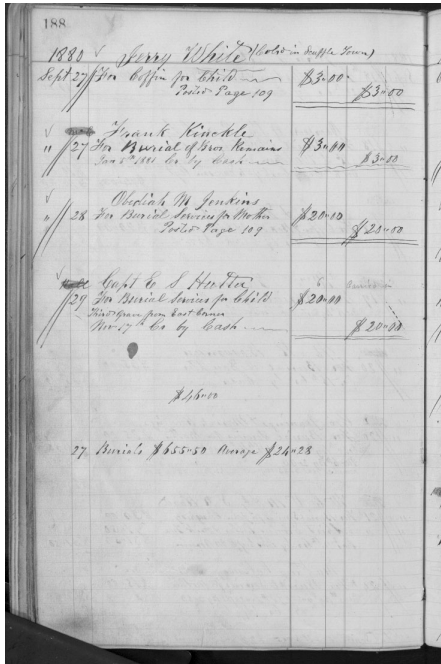 188
1880 Jerry White (Cold in Scuffle Town)
Sept 27 For Coffin for Child $3"00
Posted Page 109 $3"00
Frank Kinckle
" 27 For Burial of Bros Remains $3"00
Cr by Cash $3"00
Obediah M Jenkins
" 28 For Burial Services for Mother $20"00
Posted Page 109 $20"00
Capt E S Hutter
29 For Burial Services for Child $20"00
Third Grave from East Corner
Nov 17th Cr by Cash $20"00
$46"00
27 Burials $655"50 Average $24"28